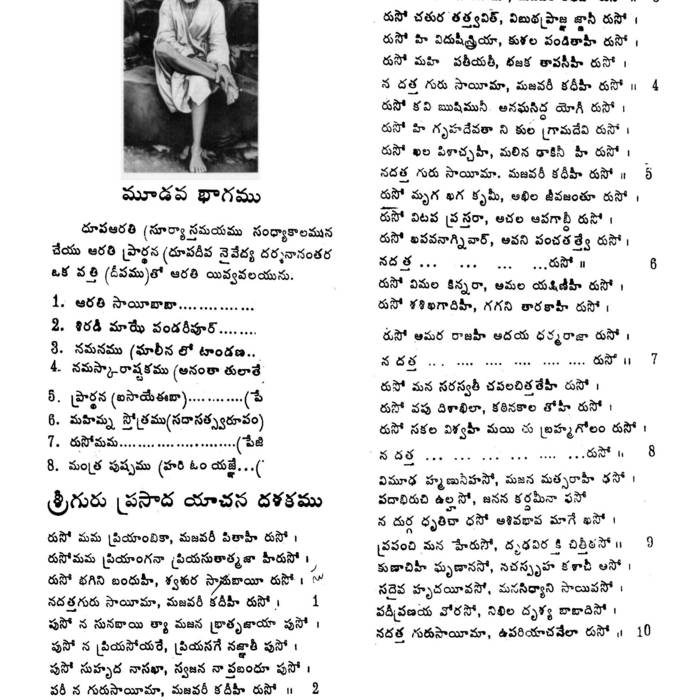 మూడవ భాగము
ధూపఆరతి (సూర్యాస్తమయము సంధ్యాకాలమున
చేయు ఆరతి ప్రార్థన (ధూపదీవ నైవేద్య దర్శనానంతర
ఒక వత్తి (దీపము)తో ఆరతి యివ్వవలయును.
1. ఆరతి సాయిబాబా..............
2. శిరడీ మాఝే పండరీపూర్........
3. నమనము (ఘాలీన లో టాండణ..
4. నమస్కారాష్టకము (అనంతా తులాతే
5. ప్రార్థన (ఐసాయేఈబా)...........(పే
6. మహిమ్న స్తోత్రము(సదాసత్స్వరూపం)
7. రుసోమమ......................(పేజి
8. మంత్ర పుష్పము (హరి ఓం యజ్ఞే...(
శ్రీగురు ప్రసాద యాచన దశకము
రుసో మమ ప్రియాంబికా, మజవరీ పితాహీ రుసో ।
రుసోమమ ప్రియాంగనా ప్రియసుతాత్మజా హీరుసో ।
రుసో భగిని బంధుహీ, శ్వశుర సాసుబాయీ రుసో ।
నదత్తగురు సాయీమా, మజవరీ కదీహీ రుసో । 1
పుసో న సునబాయి త్యా మజన భ్రాతృజాయా పుసో ।
పుసో న ప్రియసోయరే, ప్రియసగే నజ్ఞాతీ పుసో ।
పుసో సుహృద నాసఖా, స్వజన నాప్తబందూ పుసో ।
పరీ న గురుసాయీమా, మజవరీ కదీహీ రుసో ॥ 2
రుసో చతుర తత్త్వవిత్, విబుధప్రాజ్ఞ జ్ఞానీ రుసో ।
రుసో హి విదుషీస్త్రియా, కుశల పండితాహీ రుసో ।
రుసో మహి పతీయతీ, భజక తాపసీహీ రుసో ।
న దత్త గురు సాయీమా, మజవరీ కధీహీ రుసో ॥ 4
రుసో కవి ఋషిమునీ అనఘసిద్ధ యోగీ రుసో ।
రుసో హి గృహదేవతా ని కుల గ్రామదేవీ రుసో ।
రుసో ఖల పిశాచ్చహీ, మలిన ఢాకినీ హీ రుసో ।
నదత్త గురు సాయీమా. మజవరీ కధీహీ రుసో ॥ 5
రుసో మృగ ఖగ కృమీ, అఖిల జీవజంతూ రుసో ।
రుసో విటప ప్రస్తరా, అచల ఆపగాబ్ధీ రుసో ।
రుసో ఖపవనాగ్నివార్, అవని పంచతత్త్వే రుసో ।
నదత్త ... ... ... ...రుసో ॥ 6
రుసో విమల కిన్నరా, అమల యక్షిణీహీ రుసో ।
రుసో శశిఖగాదిహీ, గగని తారకాహీ రుసో ।
రుసో అమర రాజహీ అదయ ధర్మరాజా రుసో ।
న దత్త ... .... ... ... ... ... రుసో ॥ 7
రుసో మన సరస్వతీ చపలచిత్తతేహీ రుసో ।
రుసో వపు దిశాఖిలా, కఠినకాల తోహీ రుసో ।
రుసో సకల విశ్వహీ మయి తు బ్రహ్మగోలం రుసో ।
న దత్త ... ... ... ... ... ...రుసో ॥ 8
విమూఢ హ్మణునీహసో, మజన మత్సరాహీ ఢసో ।
పదాభిరుచి ఉల్హసో, జనన కర్దమీనా ఫసో
న దుర్గ ధృతిచా ధసో అశివభావ మాగే ఖసో ।
ప్రపంచి మన హేరుసో, దృఢవిరక్తి చిత్తీఠసో ॥ 9
కుణాచిహీ ఘృణానసో, నచస్పృహ కశాచీ అసో ।
సదైవ హృదయీవసో, మనసిధ్యాని సాయివసో ।
పదీప్రణయ వోరసో, నిఖిల దృశ్య బాబాదిసో ।
నదత్త గురుసాయీమా, ఉపరియాచనేలా రుసో ॥ 10